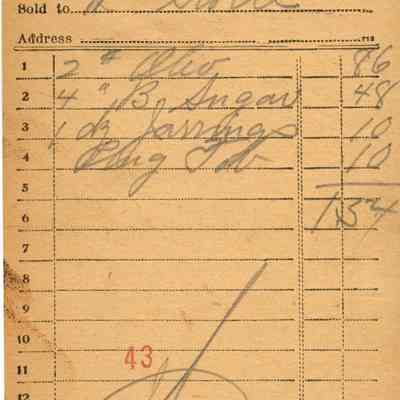 Sold to
Address
1 2 # Oleo 86
2 4 " B. Sugar 48
3 1 dz Jarrings 10
4 Plug Tob 10
5
6 1.54
7
8
9
10
43
11
12